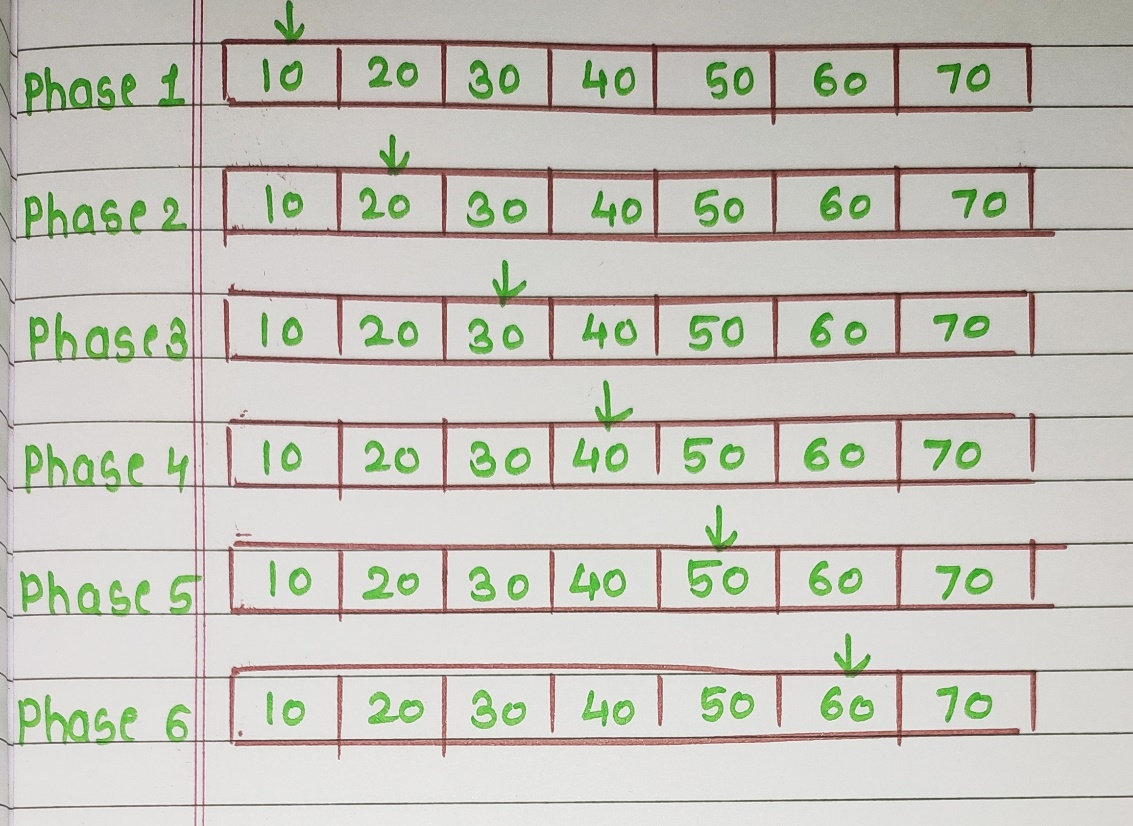 Phase 1 10 20 30 40 50 60 70
Phase 2 10 20 30 40 50 60 70
Phase 3 10 20 30 40 50 60 70
Phase 4 10 20 30 40 50 60 70
Phase 5 10 20 30 40 50 60 70
Phase 6 10 20 30 40 50 60 70